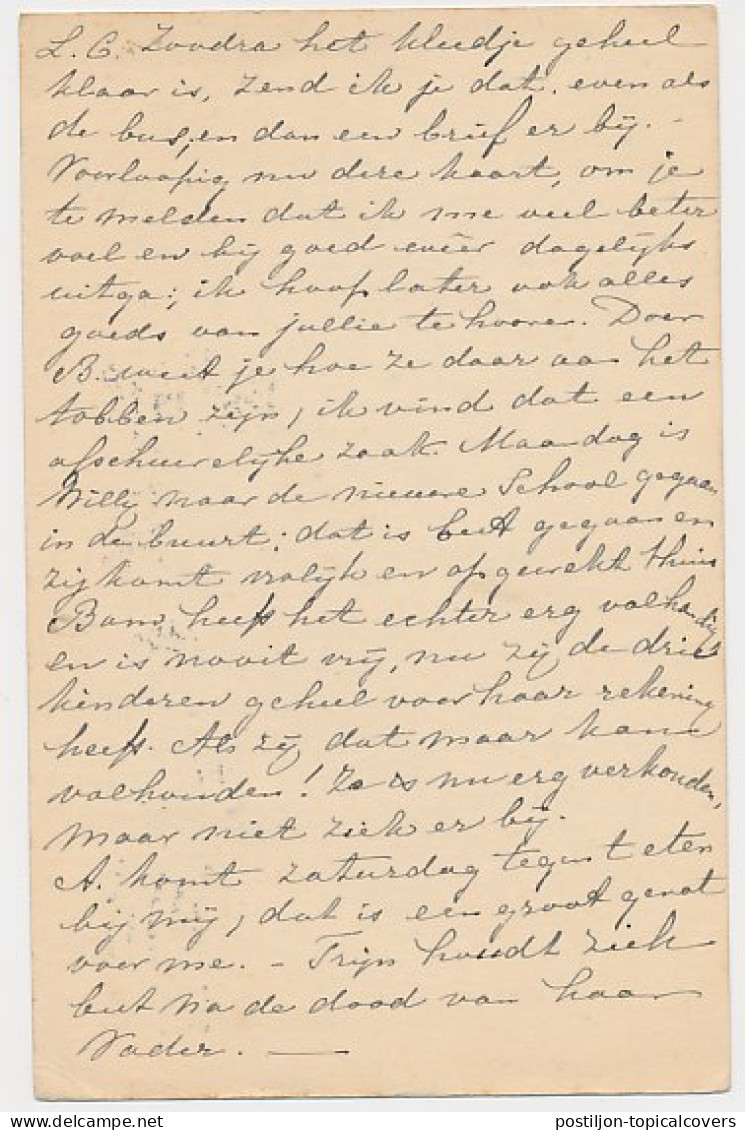 L. C. Zoodra het kleedje geheel
klaar is, zend ik je dat, even als
de bus, en dan een brief er bij. –
Voorloopig nu deze kaart, om je
te melden dat ik me veel beter
voel en bij goed weer dagelijks
uitga; ik hoop later ook alles
goeds van jullie te hooren. Door
B. weet je hoe ze daar aan het
tobben zijn, ik vind dat een
afschuwelijke zaak. Maandag is
Willy naar de nieuwe School gegaan
in de buurt; dat is best gegaan en
zij komt vrolijk en opgewekt thuis
heeft het echter erg volhandig
en is nooit vrij, nu zij de drie
kinderen geheel voor haar rekening
heeft. Als zij dat maar kan
volhouden! Ze is nu erg verkouden,
maar niet ziek er bij.
A. komt Zaturdag tegen 't eten
bij mij, dat is een groot genot
voor me. – Trijn houdt zich
best na de dood van haar
Vader. —
postiljon-topicalcovers